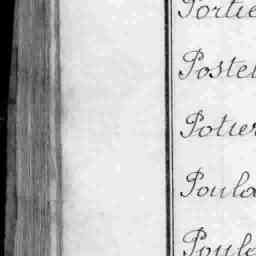 Portie
Postel
Potier
Poula
Poula